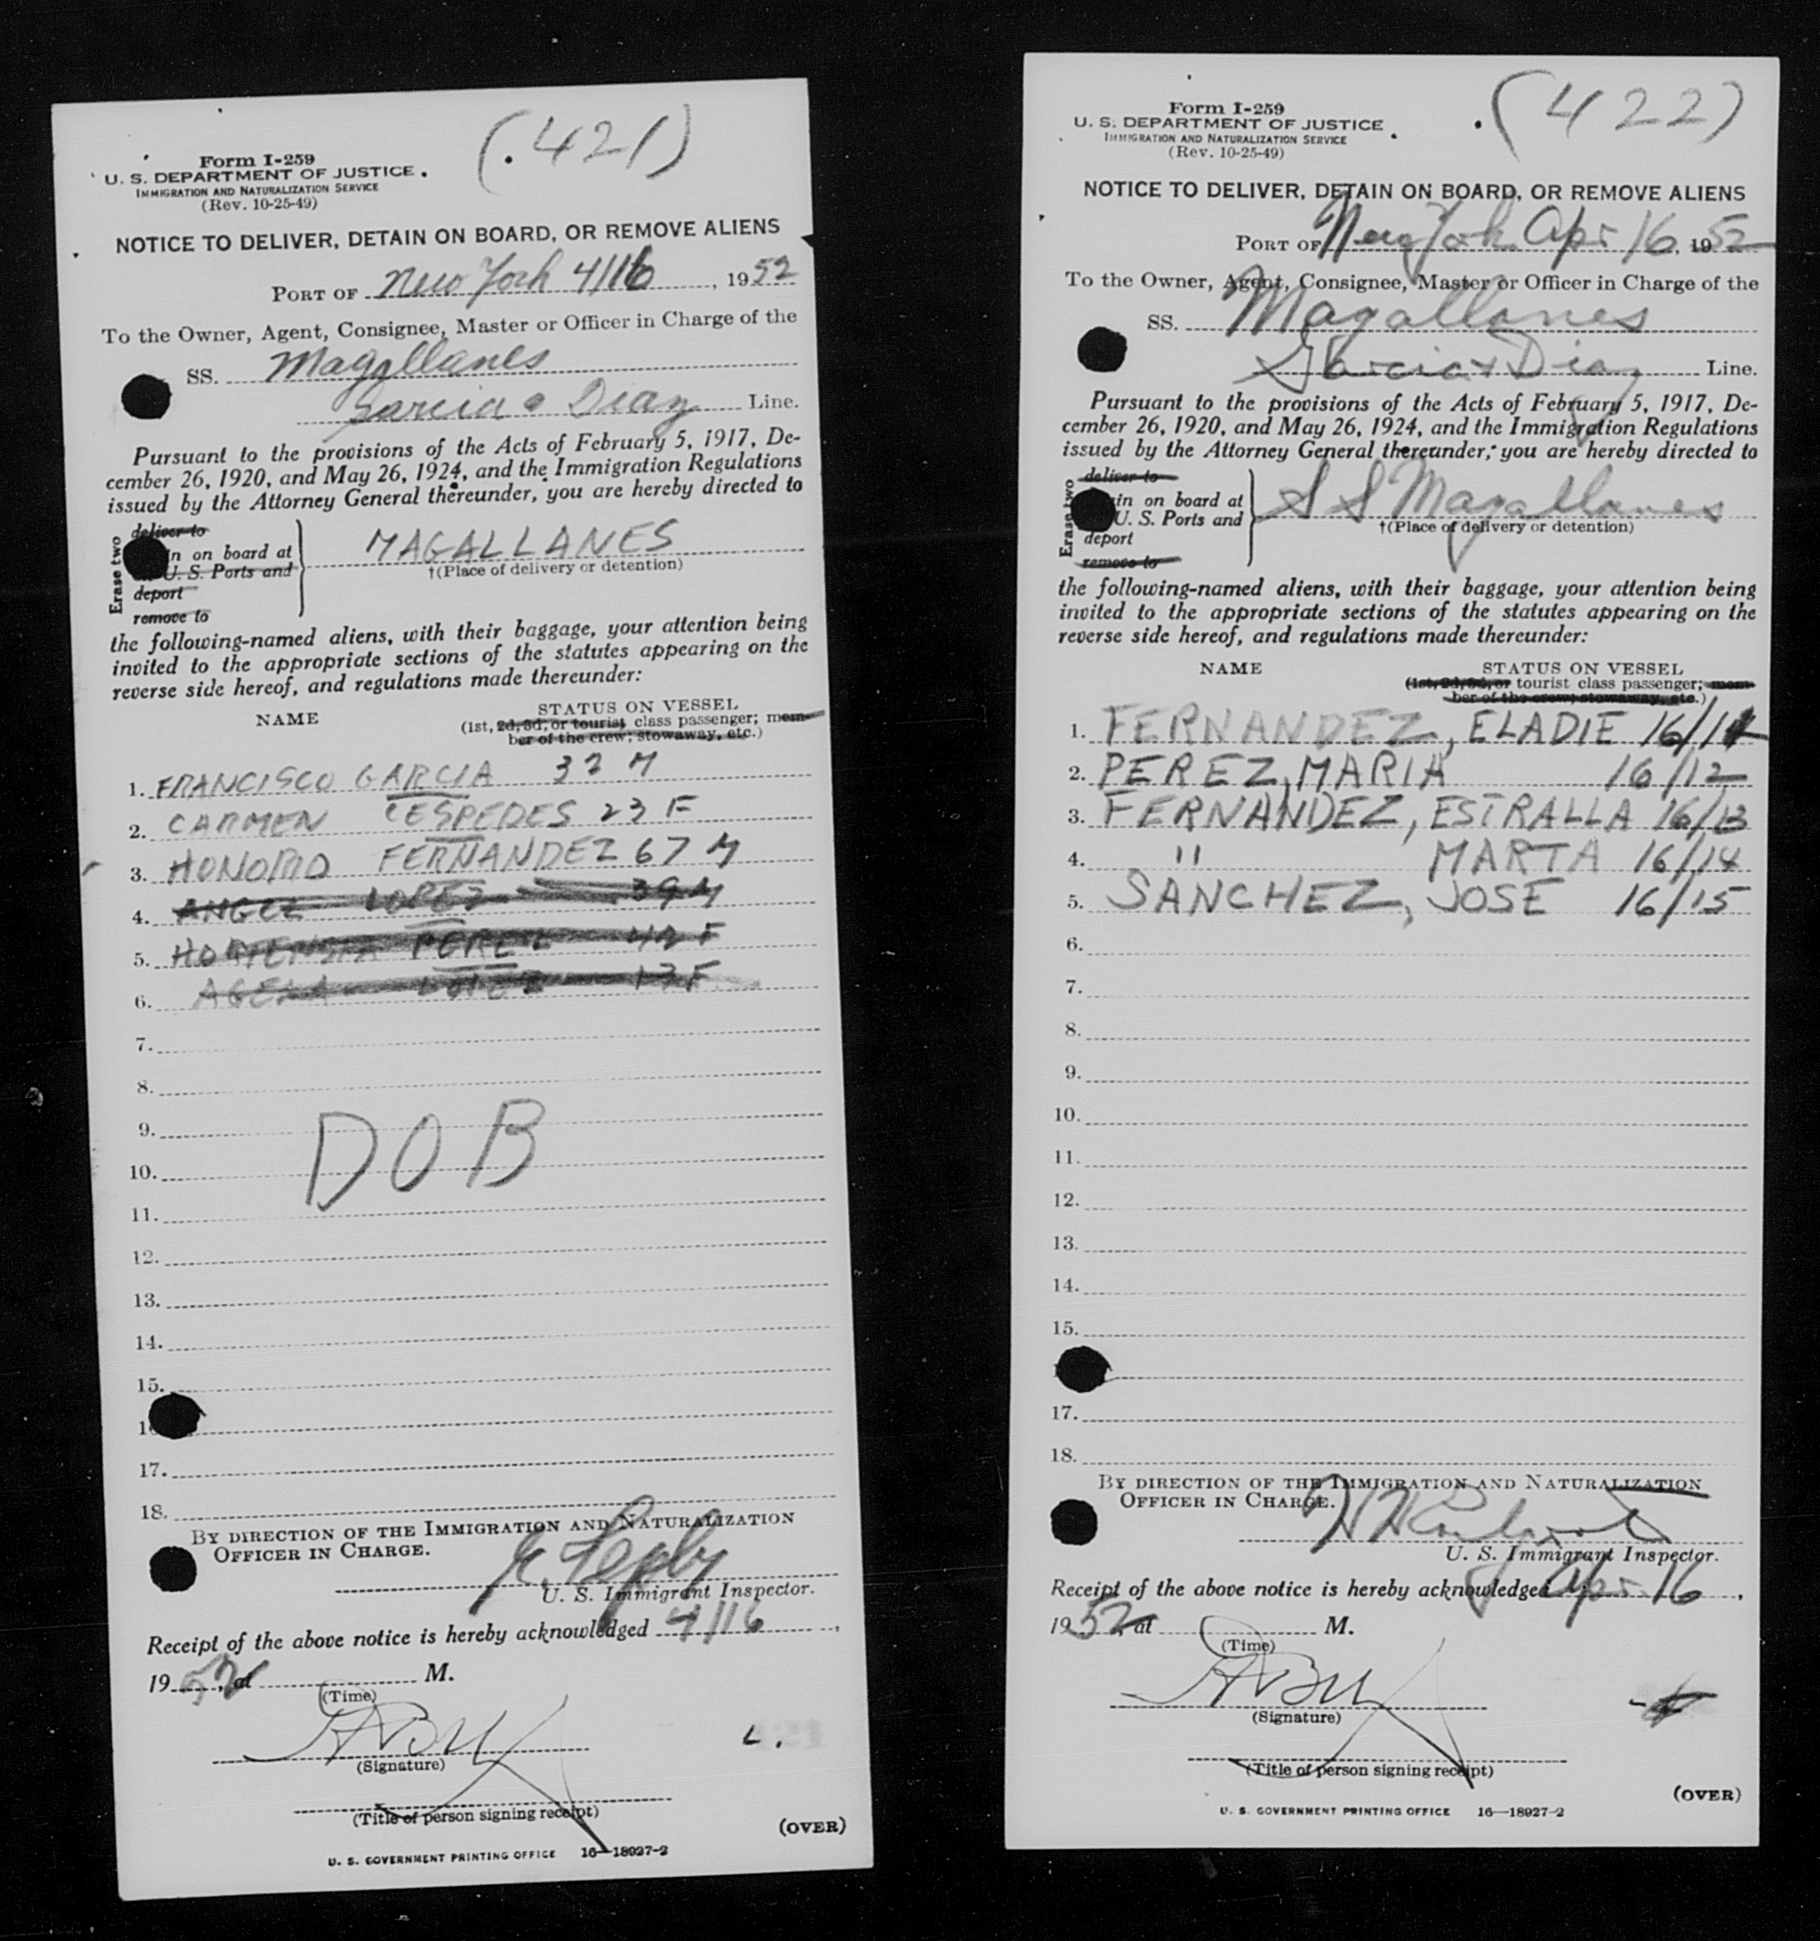 (421)
Form I-259
U. S. DEPARTMENT OF JUSTICE
IMMIGRATION AND NATURALIZATION SERVICE
(Rev. 10-25-49)
NOTICE TO DELIVER, DETAIN ON BOARD, OR REMOVE ALIENS
PORT OF New York 4/16, 1952
To the Owner, Agent, Consignee, Master or Officer in Charge of the
SS. Magallanes
Garcia & Diaz Line.
Pursuant to the provisions of the Acts of February 5, 1917, De-
cember 26, 1920, and May 26, 1924, and the Immigration Regulations
issued by the Attorney General thereunder, you are hereby directed to
Erase two
deliver to
in on board at
U. S. Ports and
deport
remove to
MAGALLANES
†(Place of delivery or detention)
the following-named aliens, with their baggage, your attention being
invited to the appropriate sections of the statutes appearing on the
reverse side hereof, and regulations made thereunder:
NAME STATUS ON VESSEL
(1st, 2d, 3d, or tourist class passenger; mem-
ber of the crew; stowaway, etc.)
1. FRANCISCO GARCIA 32 M
2. CARMEN CESPEDES 23 F
3. HONORIO FERNANDEZ 67 M
4. ANGEL LOPEZ 39 M
5. HORTENSIA PEREZ 42 F
6. LOPEZ F
7.
8.
9.
10.
DOB
11.
12.
13.
14.
15.
17.
18.
BY DIRECTION OF THE IMMIGRATION AND NATURALIZATION
OFFICER IN CHARGE.
U. S. Immigrant Inspector.
Receipt of the above notice is hereby acknowledged 4/16,
1952, at M.
(Time)
(Signature)
(Title of person signing receipt)
(OVER)
U. S. GOVERNMENT PRINTING OFFICE 16—18927-2
(422)
Form I-259
U. S. DEPARTMENT OF JUSTICE
IMMIGRATION AND NATURALIZATION SERVICE
(Rev. 10-25-49)
NOTICE TO DELIVER, DETAIN ON BOARD, OR REMOVE ALIENS
PORT OF New York Apr 16, 1952
To the Owner, Agent, Consignee, Master or Officer in Charge of the
SS. Magallanes
Garcia & Diaz Line.
Pursuant to the provisions of the Acts of February 5, 1917, De-
cember 26, 1920, and May 26, 1924, and the Immigration Regulations
issued by the Attorney General thereunder, you are hereby directed to
Erase two
deliver to
in on board at
U. S. Ports and
deport
remove to
S S Magallanes
†(Place of delivery or detention)
the following-named aliens, with their baggage, your attention being
invited to the appropriate sections of the statutes appearing on the
reverse side hereof, and regulations made thereunder:
NAME STATUS ON VESSEL
(1st, 2d, 3d, or tourist class passenger; mem-
ber of the crew; stowaway, etc.)
1. FERNANDEZ, ELADIE 16/11
2. PEREZ, MARIA 16/12
3. FERNANDEZ, ESTRALLA 16/13
4. " MARTA 16/14
5. SANCHEZ, JOSE 16/15
6.
7.
8.
9.
10.
11.
12.
13.
14.
15.
17.
18.
BY DIRECTION OF THE IMMIGRATION AND NATURALIZATION
OFFICER IN CHARGE.
U. S. Immigrant Inspector.
Receipt of the above notice is hereby acknowledged Apr 16,
1952, at M.
(Time)
(Signature)
(Title of person signing receipt)
(OVER)
U. S. GOVERNMENT PRINTING OFFICE 16—18927-2